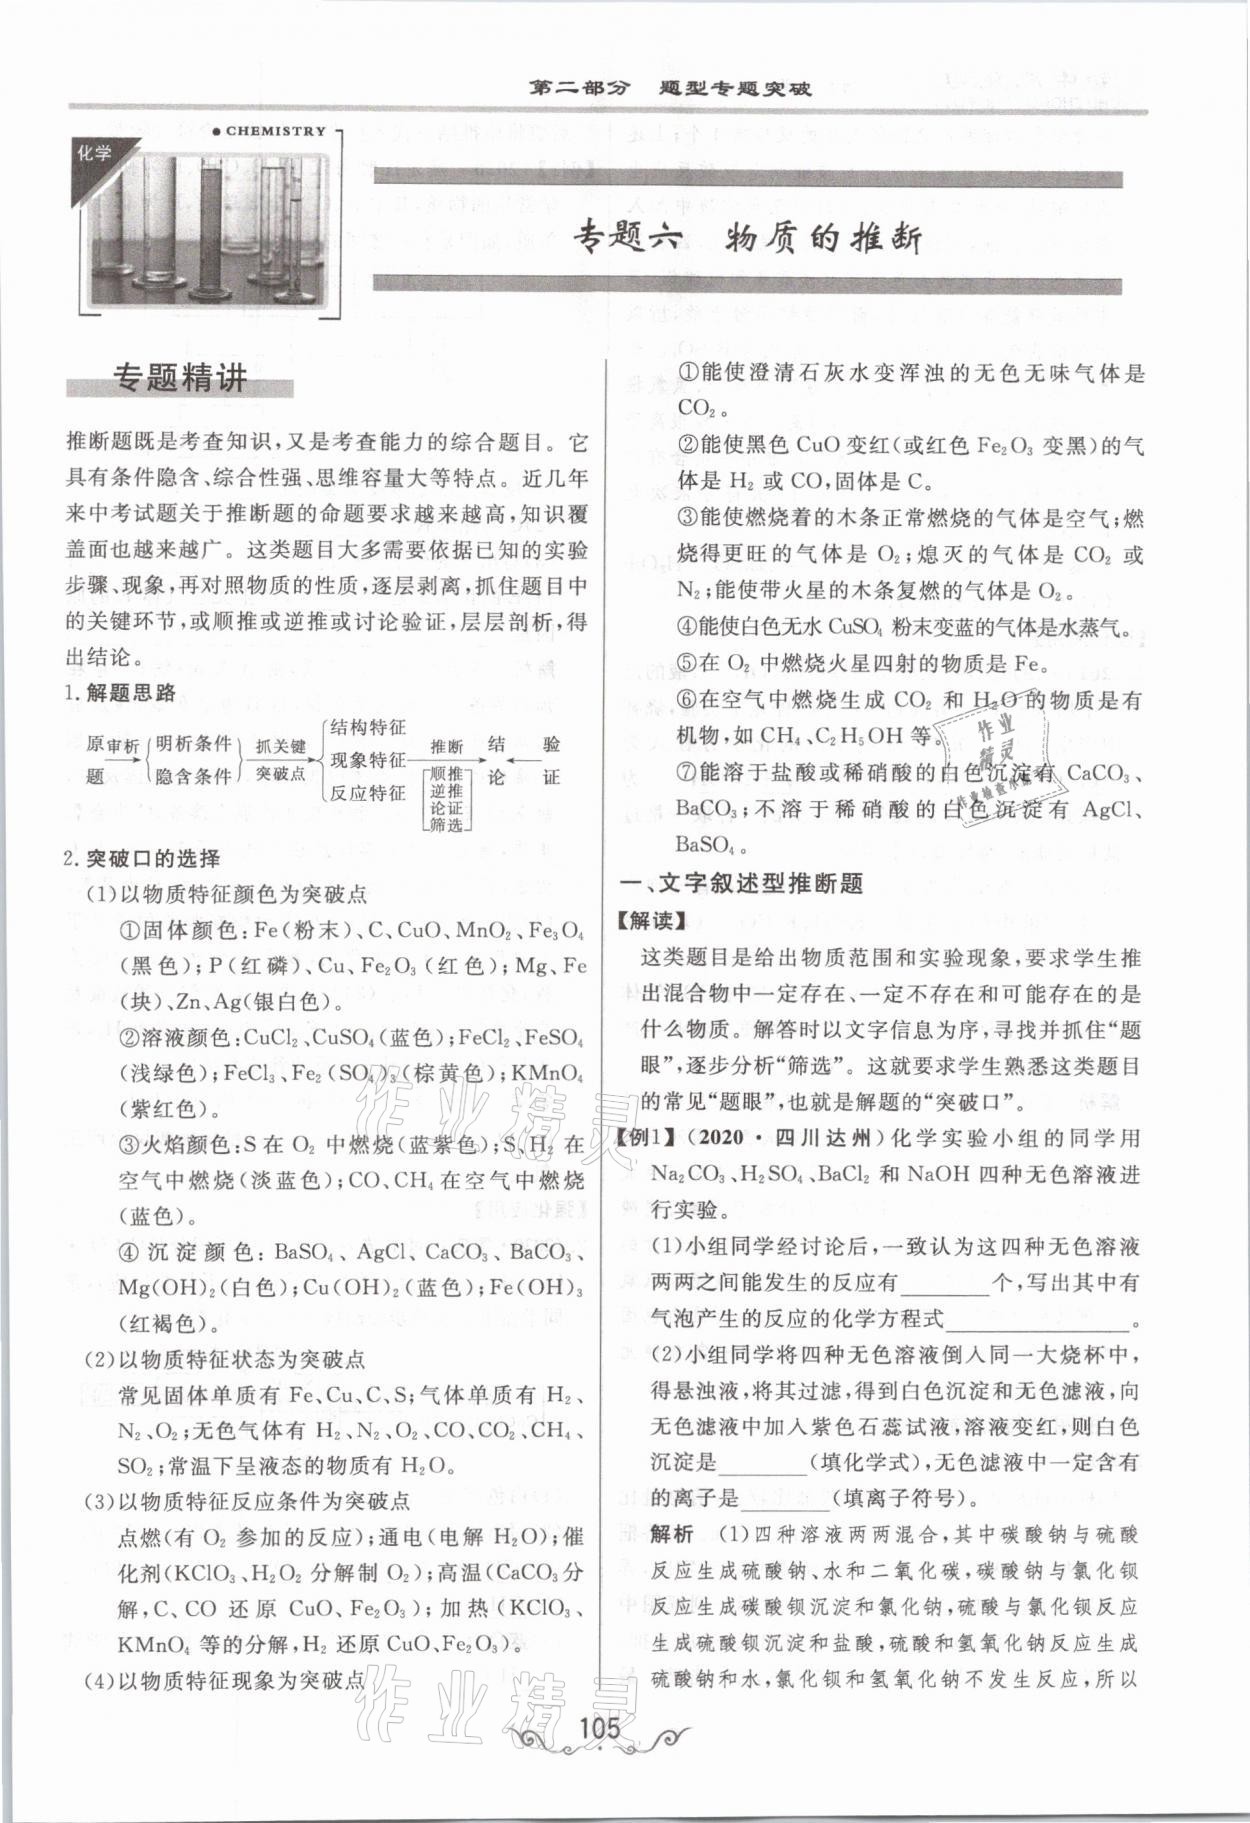 第二部分 题型专题突破
• CHEMISTRY
化学
专题六 物质的推断
专题精讲
推断题既是考查知识,又是考查能力的综合题目。它
具有条件隐含、综合性强、思维容量大等特点。近几年
来中考试题关于推断题的命题要求越来越高,知识覆
盖面也越来越广。这类题目大多需要依据已知的实验
步骤、现象,再对照物质的性质,逐层剥离,抓住题目中
的关键环节,或顺推或逆推或讨论验证,层层剖析,得
出结论。
1. 解题思路
原题
审析
明析条件
隐含条件
抓关键
突破点
结构特征
现象特征
反应特征
推断
顺推
逆推
论证
筛选
结论
验证
2. 突破口的选择
(1)以物质特征颜色为突破点
①固体颜色:Fe(粉末)、C、CuO、MnO₂、Fe₃O₄
(黑色);P(红磷)、Cu、Fe₂O₃(红色);Mg、Fe
(块)、Zn、Ag(银白色)。
②溶液颜色:CuCl₂、CuSO₄(蓝色);FeCl₂、FeSO₄
(浅绿色);FeCl₃、Fe₂(SO₄)₃(棕黄色);KMnO₄
(紫红色)。
③火焰颜色:S 在 O₂ 中燃烧(蓝紫色);S、H₂ 在
空气中燃烧(淡蓝色);CO、CH₄在空气中燃烧
(蓝色)。
④沉淀颜色:BaSO₄、AgCl、CaCO₃、BaCO₃、
Mg(OH)₂(白色);Cu(OH)₂(蓝色);Fe(OH)₃
(红褐色)。
(2)以物质特征状态为突破点
常见固体单质有 Fe、Cu、C、S;气体单质有 H₂、
N₂、O₂;无色气体有 H₂、N₂、O₂、CO、CO₂、CH₄、
SO₂;常温下呈液态的物质有 H₂O。
(3)以物质特征反应条件为突破点
点燃(有 O₂ 参加的反应);通电(电解 H₂O);催
化剂(KClO₃、H₂O₂ 分解制 O₂);高温(CaCO₃分
解,C、CO 还原 CuO、Fe₂O₃);加热(KClO₃、
KMnO₄ 等的分解,H₂ 还原 CuO、Fe₂O₃)。
(4)以物质特征现象为突破点
①能使澄清石灰水变浑浊的无色无味气体是
CO₂。
②能使黑色 CuO 变红(或红色 Fe₂O₃ 变黑)的气
体是 H₂ 或 CO,固体是 C。
③能使燃烧着的木条正常燃烧的气体是空气;燃
烧得更旺的气体是 O₂;熄灭的气体是 CO₂ 或
N₂;能使带火星的木条复燃的气体是 O₂。
④能使白色无水 CuSO₄ 粉末变蓝的气体是水蒸气。
⑤在 O₂ 中燃烧火星四射的物质是 Fe。
⑥在空气中燃烧生成 CO₂ 和 H₂O 的物质是有
机物,如 CH₄、C₂H₅OH 等。
⑦能溶于盐酸或稀硝酸的白色沉淀有 CaCO₃、
BaCO₃;不溶于稀硝酸的白色沉淀有 AgCl、
BaSO₄。
一、文字叙述型推断题
【解读】
这类题目是给出物质范围和实验现象,要求学生推
出混合物中一定存在、一定不存在和可能存在的是
什么物质。解答时以文字信息为序,寻找并抓住“题
眼”,逐步分析“筛选”。这就要求学生熟悉这类题目
的常见“题眼”,也就是解题的“突破口”。
【例1】(2020·四川达州)化学实验小组的同学用
Na₂CO₃、H₂SO₄、BaCl₂ 和 NaOH 四种无色溶液进
行实验。
(1)小组同学经讨论后,一致认为这四种无色溶液
两两之间能发生的反应有________个,写出其中有
气泡产生的反应的化学方程式________________。
(2)小组同学将四种无色溶液倒入同一大烧杯中,
得悬浊液,将其过滤,得到白色沉淀和无色滤液,向
无色滤液中加入紫色石蕊试液,溶液变红,则白色
沉淀是________(填化学式),无色滤液中一定含有
的离子是________(填离子符号)。
解析 (1)四种溶液两两混合,其中碳酸钠与硫酸
反应生成硫酸钠、水和二氧化碳,碳酸钠与氯化钡
反应生成碳酸钡沉淀和氯化钠,硫酸与氯化钡反应
生成硫酸钡沉淀和盐酸,硫酸和氢氧化钠反应生成
硫酸钠和水,氯化钡和氢氧化钠不发生反应,所以
作业精灵
作业检查小助手
作业精灵
作业精灵
105